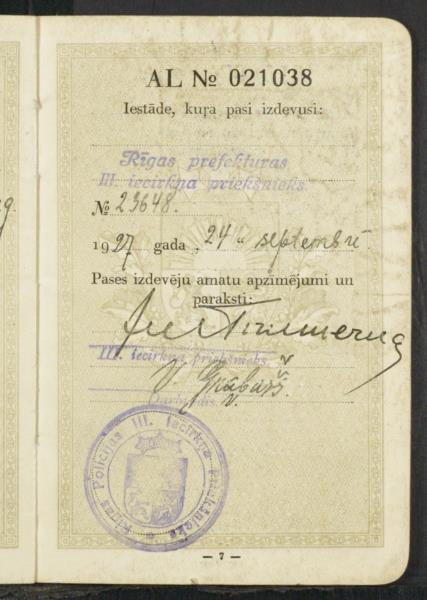 AL № 021038
Iestāde, kuŗa pasi izdevusi:
Rīgas prefektūras
III. iecirkņa priekšnieks.
№ 23648.
1927 gada „24” septembrē
Pases izdevēju amatu apzīmējumi un
paraksti:
III. iecirkņa priekšnieks.
Darbvedis.
Rīgas Policijas III. Iecirkņa Priekšnieks
— 7 —